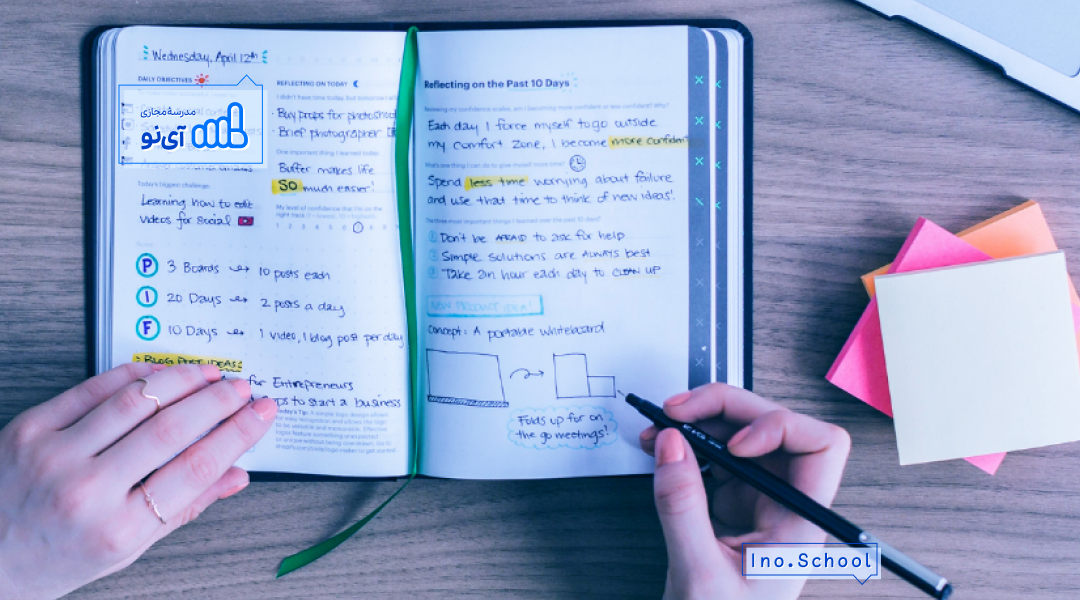 Wednesday, April 12th
DAILY OBJECTIVES
مدرسه مجازی
آی‌نو
Today's biggest challenge:
Learning how to edit
videos for social
P 3 Boards → 10 posts each
I 20 Days → 2 posts a day
F 10 Days → 1 video, 1 blog post per day
BLOG POST IDEAS:
for Entrepreneurs
to start a business
REFLECTING ON TODAY
I didn't have time today, but tomorrow I will
· Buy props for photoshoot
· Brief photographer
One important thing I learned today:
Buffer makes life
SO much easier!
My level of confidence that I'm on the
right track (1 = lowest, 10 = highest):
1 2 3 4 5 6
Today's Tip: A simple logo design allows
for easy
Reflecting on the Past 10 Days
Reviewing my confidence scales, am I becoming more confident or less confident? Why?
Each day I force myself to go outside
my comfort zone, I become more confident
What's one thing I can do to give myself more time?
Spend less time worrying about failure
and use that time to think of new ideas!
The three most important things I learned over the past 10 days?
1 Don't be AFRAID to ask for help
2 Simple solutions are ALWAYS best
3 Take an hour each day to CLEAN UP
NEW PRODUCT IDEA!
Concept: A portable whiteboard
Folds up for on
the go meetings!
Ino.School